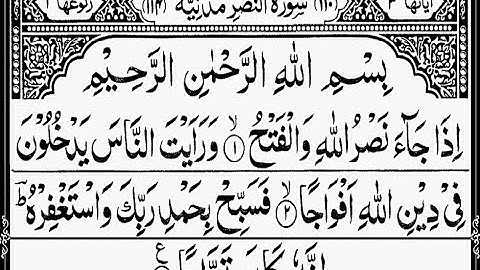 اٰيَاتُهَا ٣ (١١٠) سُوْرَةُ النَّصْرِ مَدَنِيَّةٌ (١١٤) رُكُوْعُهَا ١
بِسْمِ اللّٰهِ الرَّحْمٰنِ الرَّحِيْمِ
اِذَا جَآءَ نَصْرُ اللّٰهِ وَالْفَتْحُ ۙ‏﴿۱﴾ وَرَاَيْتَ النَّاسَ يَدْخُلُوْنَ
فِيْ دِيْنِ اللّٰهِ اَفْوَاجًا ۙ‏﴿۲﴾ فَسَبِّحْ بِحَمْدِ رَبِّكَ وَاسْتَغْفِرْهُ ؕ
اِنَّهٗ كَانَ تَوَّابًا